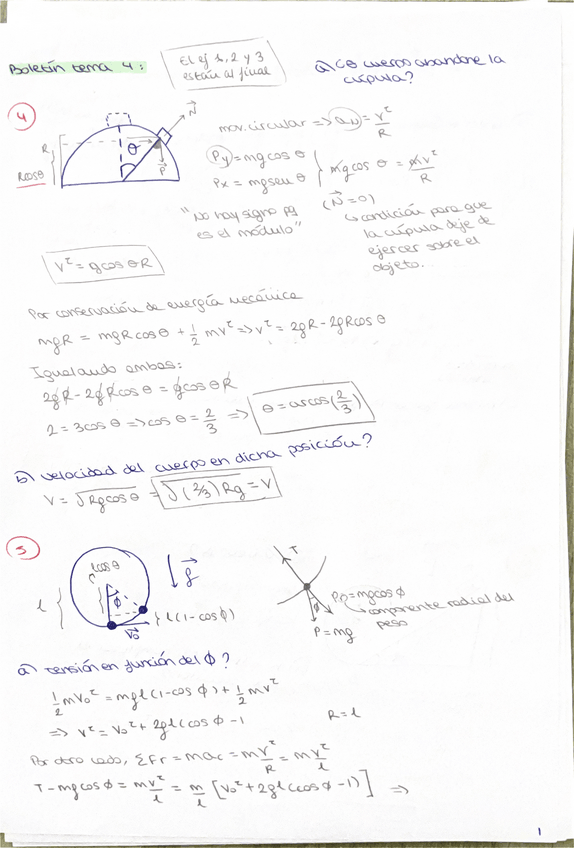 Boletín tema 4:
El ej 1, 2 y 3
están al final
a) ¿θ cuerpo abandone la
cúpula?
4
R
Rcosθ
θ
N
P
mov. circular => aN = v²/R
Py = mg cos θ
Px = mg sen θ
mg cos θ = mv²/R
(N = 0)
↳ condición para que
la cúpula deje de
ejercer sobre el
objeto.
"No hay signo pq
es el módulo"
V² = g cos θ R
Por conservación de energía mecánica
mgR = mgR cos θ + 1/2 mv² => v² = 2gR - 2gR cos θ
Igualando ambas:
2gR - 2gR cos θ = g cos θ R
2 = 3 cos θ => cos θ = 2/3 => θ = arcos(2/3)
b) velocidad del cuerpo en dicha posición?
V = √Rg cos θ = √(2/3) Rg = V
5
l cos θ
l
ϕ
V₀
} l(1-cos ϕ)
g
T
ϕ
Pρ = mg cos ϕ
↳ componente radial del
peso
P = mg
a) tensión en función del ϕ?
1/2 mV₀² = mgl(1-cos ϕ) + 1/2 mv²
=> v² = V₀² + 2gl(cos ϕ - 1
R = l
Por otro lado, ΣFr = mac = m v²/R = m v²/l
T - mg cos ϕ = mv²/l = m/l [V₀² + 2gl(cos ϕ - 1)] =>
1